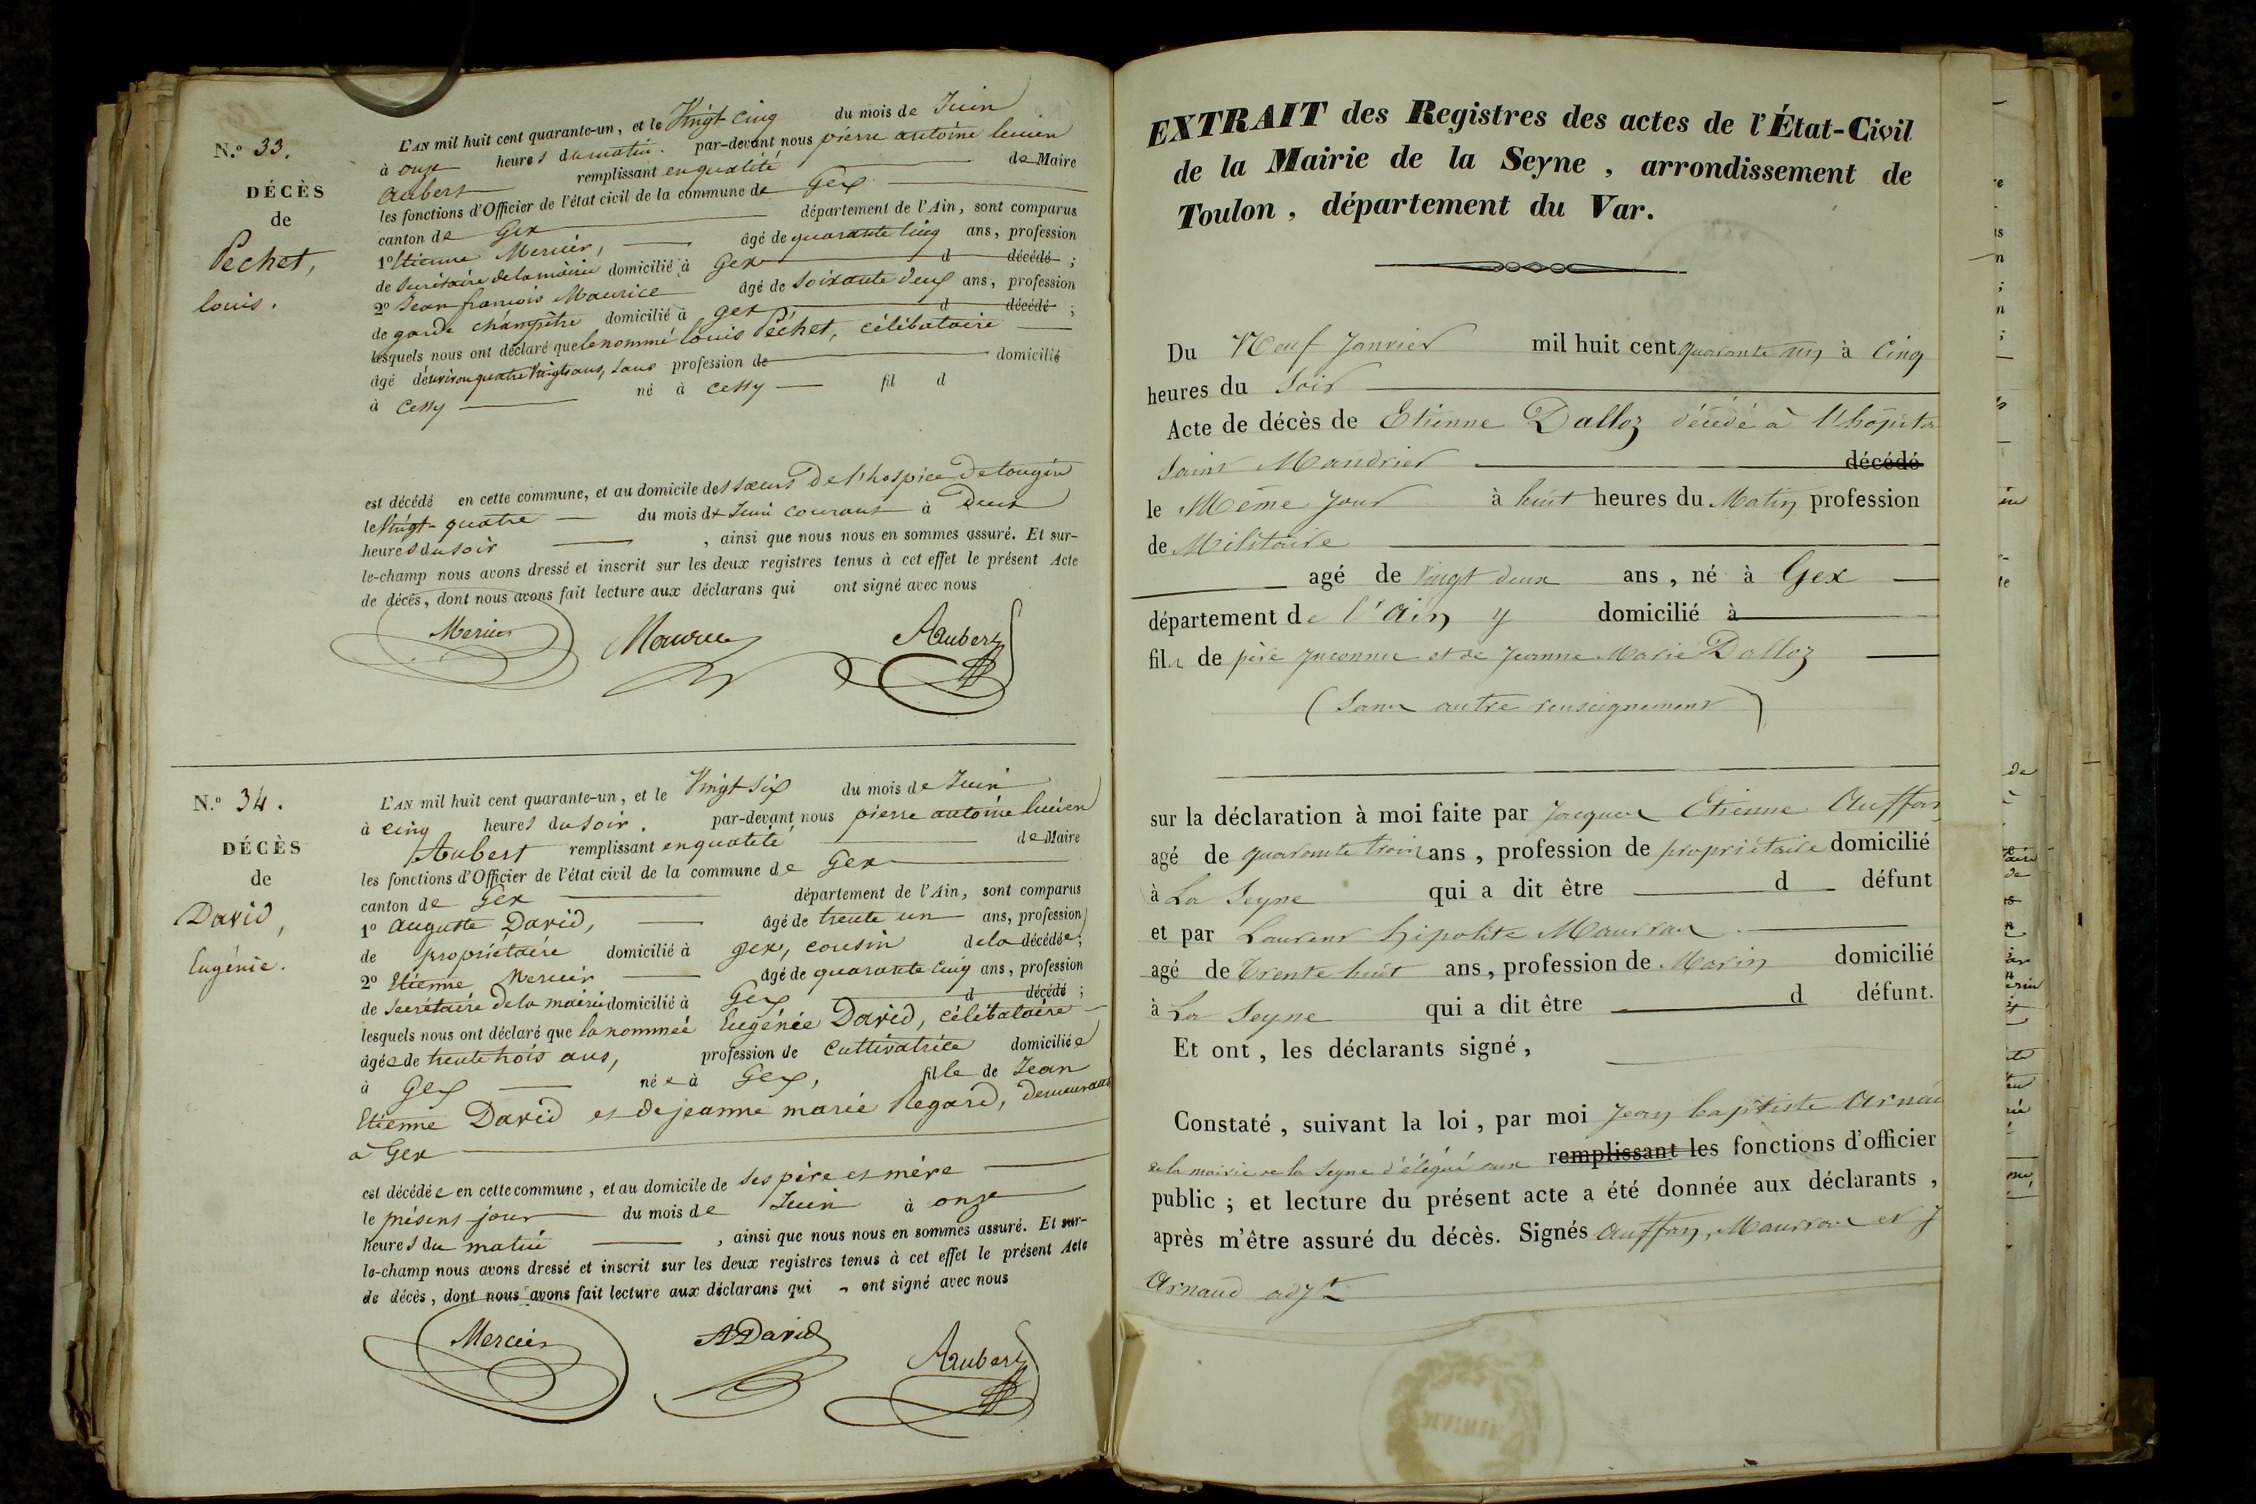 N.º 33.
DÉCÈS
de
Péchet,
Louis.
L'AN mil huit cent quarante-un, et le Vingt cinq du mois de Juin
à onze heures du matin. par-devant nous pierre antoine lucien
Aubert remplissant en qualité de Maire
les fonctions d'Officier de l'état civil de la commune de Gex
canton de Gex département de l'Ain, sont comparus
1º Etienne Mercier, âgé de quarante cinq ans, profession
de Secrétaire de la mairie domicilié à Gex d décédé ;
2º Jean françois Maurice âgé de soixante deux ans, profession
de garde champêtre domicilié à gex d décédé ;
lesquels nous ont déclaré que le nommé Louis Péchet, célibataire
âgé d'environ quatre vingts ans, sans profession de domicilié
à Cessy né à Cessy fil d
est décédé en cette commune, et au domicile des sœurs De l'hospice De tougin
le Vingt-quatre du mois de Juin courant à Deux
heures du soir , ainsi que nous nous en sommes assuré. Et sur-
le-champ nous avons dressé et inscrit sur les deux registres tenus à cet effet le présent Acte
de décès, dont nous avons fait lecture aux déclarans qui ont signé avec nous
Mercier Maurice AAubert
N.º 34.
DÉCÈS
de
David,
Eugénie.
L'AN mil huit cent quarante-un, et le Vingt six du mois de Juin
à cinq heures du soir. par-devant nous pierre antoine lucien
Aubert remplissant en qualité de Maire
les fonctions d'Officier de l'état civil de la commune de Gex
canton de Gex département de l'Ain, sont comparus
1º Auguste David, âgé de trente un ans, profession
de propriétaire domicilié à gex, cousin de la décédée ;
2º Etienne Mercier âgé de quarante cinq ans, profession
de Secrétaire de la mairie domicilié à Gex d décédé ;
lesquels nous ont déclaré que la nommée Eugénie David, célibataire
âgée de trente trois ans, profession de Cultivatrice domiciliée
à Gex née à Gex, fille de Jean
Etienne David et de jeanne marie Regard, demeurans
à Gex
est décédée en cette commune, et au domicile de ses père et mère
le présent jour du mois de Juin à onze
heures du matin , ainsi que nous nous en sommes assuré. Et sur-
le-champ nous avons dressé et inscrit sur les deux registres tenus à cet effet le présent Acte
de décès, dont nous avons fait lecture aux déclarans qui ont signé avec nous
Mercier ADavid AAubert
EXTRAIT des Registres des actes de l'État-Civil
de la Mairie de la Seyne , arrondissement de
Toulon , département du Var.
Du Neuf Janvier mil huit cent quarante un à Cinq
heures du Soir
Acte de décès de Etienne Dalloz décédé à l'hôpital
Saint Mandrier décédé
le Même jour à huit heures du Matin profession
de Militaire
agé de Vingt deux ans , né à Gex
département de l'Ain y domicilié à
fils de père inconnu et de Jeanne Marie Dalloz
(Sans autre renseignement)
sur la déclaration à moi faite par Jacques Etienne Auffan
agé de quarante trois ans , profession de propriétaire domicilié
à La Seyne qui a dit être d défunt
et par Laurent hipolite Maurran
agé de Trente huit ans , profession de Marin domicilié
à La Seyne qui a dit être d défunt.
Et ont , les déclarants signé ,
Constaté , suivant la loi , par moi Jean baptiste Arnau
de la mairie de la Seyne délégué aux remplissant les fonctions d'officier
public ; et lecture du présent acte a été donnée aux déclarants ,
après m'être assuré du décès. Signés Auffan, Maurran et J
Arnaud adjt